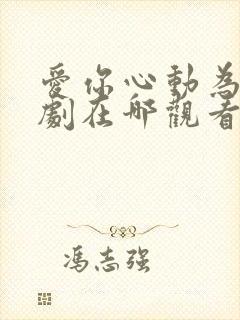 愛你心動為
劇在哪觀看
冯志强